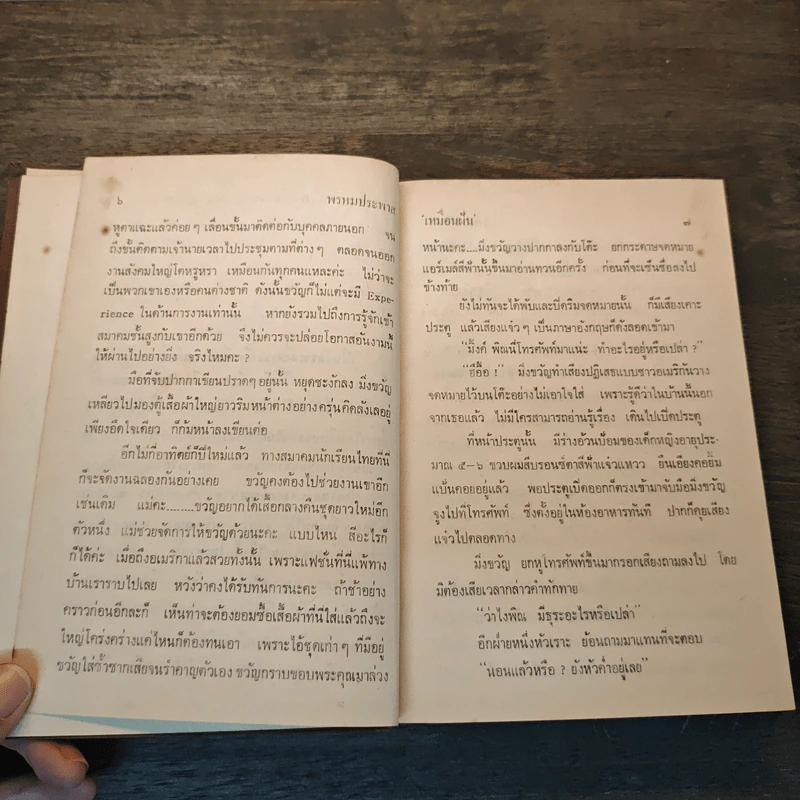 ๖ พรหมประพาส
หูตาแฉะแล้วค่อยๆ เลื่อนขั้นมาติดต่อกับบุคคลภายนอก จน
ถึงขั้นติดตามเจ้านายเวลาไปประชุมตามที่ต่างๆ ตลอดจนออก
งานสังคมใหญ่โตหรูหรา เหมือนกันทุกคนแหละค่ะ ไม่ว่าจะ
เป็นพวกเขาเองหรือคนต่างชาติ ดังนั้นขวัญก็ไม่แต่จะมี Expe-
rience ในด้านการงานเท่านั้น หากยังรวมไปถึงการรู้จักเข้า
สมาคมชั้นสูงกับเขาอีกด้วย จึงไม่ควรจะปล่อยโอกาสอันงามนี้
ให้ผ่านไปอย่างยิ่ง จริงไหมคะ ?
มือที่จับปากกาเขียนปราดๆ อยู่นั้น หยุดชะงักลง มิ่งขวัญ
เหลียวไปมองตู้เสื้อผ้าใหญ่ยาวริมหน้าต่างอย่างครุ่นคิดลังเลอยู่
เพียงอึดใจเดียว ก็ก้มหน้าลงเขียนต่อ
อีกไม่กี่อาทิตย์ก็ปีใหม่แล้ว ทางสมาคมนักเรียนไทยที่นี่
ก็จะจัดงานฉลองกันอย่างเคย ขวัญคงต้องไปช่วยงานเขาอีก
เช่นเดิม แม่คะ........ขวัญอยากได้เสื้อกลางคืนชุดยาวใหม่อีก
ตัวหนึ่ง แม่ช่วยจัดการให้ขวัญด้วยนะคะ แบบไหน สีอะไรก็
ก็ได้ค่ะ เมื่อถึงอเมริกาแล้วสวยทั้งนั้น เพราะแฟชั่นที่นี่แพ้ทาง
บ้านเราราบไปเลย หวังว่าคงได้รับทันการนะคะ ถ้าช้าอย่าง
คราวก่อนอีกละก็ เห็นท่าจะต้องยอมซื้อเสื้อผ้าที่นี่ใส่แล้วถึงจะ
ใหญ่โคร่งคร่างแค่ไหนก็ต้องทนเอา เพราะไอ้ชุดเก่าๆ ที่มีอยู่
ขวัญใส่ซ้ำซากเสียจนรำคาญตัวเอง ขวัญกราบขอบพระคุณมาล่วง
'เหมือนฝัน' ๗
หน้านะคะ....มิ่งขวัญวางปากกาลงกับโต๊ะ ยกกระดาษจดหมาย
แอร์เมล์สีฟ้านั้นขึ้นมาอ่านทวนอีกครั้ง ก่อนที่จะเซ็นชื่อลงไป
ข้างท้าย
ยังไม่ทันจะได้พับและปิดริมจดหมายนั้น ก็มีเสียงเคาะ
ประตู แล้วเสียงแจ๋วๆ เป็นภาษาอังกฤษก็ดังลอดเข้ามา
“มิ้งค์ พิณนี่โทรศัพท์มาแน่ะ ทำอะไรอยู่หรือเปล่า ?”
“ฮือื้อ !” มิ่งขวัญทำเสียงปฏิเสธแบบชาวอเมริกันวาง
จดหมายไว้บนโต๊ะอย่างไม่เอาใจใส่ เพราะรู้ดีว่าในบ้านนี้นอก
จากเธอแล้ว ไม่มีใครสามารถอ่านรู้เรื่อง เดินไปเปิดประตู
ที่หน้าประตูนั้น มีร่างอ้วนป้อมของเด็กหญิงอายุประ-
มาณ ๕-๖ ขวบผมสีบรอนซ์ตาสีฟ้าแจ๋วแหวว ยืนเอียงคอยิ้ม
แป้นคอยอยู่แล้ว พอประตูเปิดออกก็ตรงเข้ามาจับมือมิ่งขวัญ
จูงไปที่โทรศัพท์ ซึ่งตั้งอยู่ในห้องอาหารทันที ปากก็คุยเสียง
แจ๋วไปตลอดทาง
มิ่งขวัญ ยกหูโทรศัพท์ขึ้นมากรอกเสียงถามลงไป โดย
มิต้องเสียเวลากล่าวคำทักทาย
“ว่าไงพิณ มีธุระอะไรหรือเปล่า”
อีกฝ่ายหนึ่งหัวเราะ ย้อนถามมาแทนที่จะตอบ
“นอนแล้วหรือ ? ยังหัวค่ำอยู่เลย”